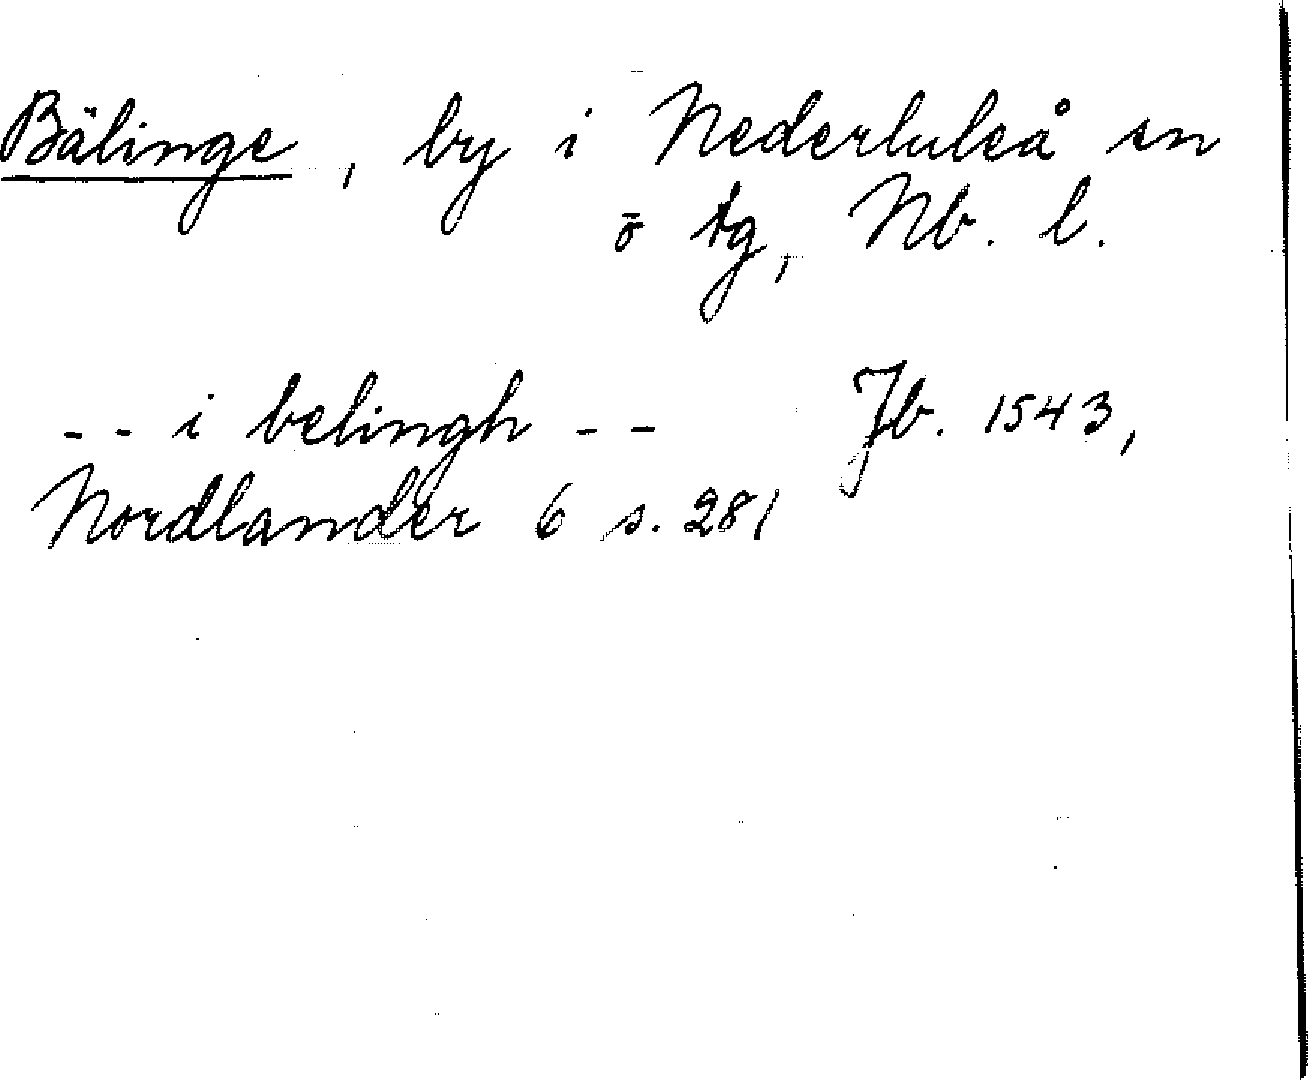 Bälinge, by i Nederluleå sn
ö tg, Nb. l.
-- i belingh -- Jb. 1543,
Nordlander 6 s. 281